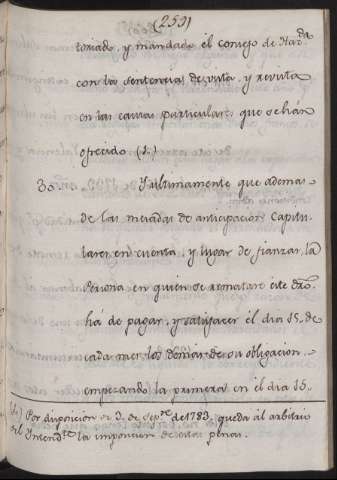 (253)
toriado, y mandado el consejo de Haz.da
con las sentencias de vista, y revista
en las causas particulares que se hán
ofrecido (1.)
30. Y ultimamente que ademas
de las mesadas de anticipacion capitu-
lares en cuenta, y lugar de fianzas, la
Persona en quien se rematare este dro
há de pagar, y satisfacer el dia 15. de
cada mes los demas de su obligacion
empezando la primera en el dia 15.
(1.) Por disposicion de 3. de Sep.re de 1783. queda al arbitrio
del Yntend.te la imposicion de estas penas.